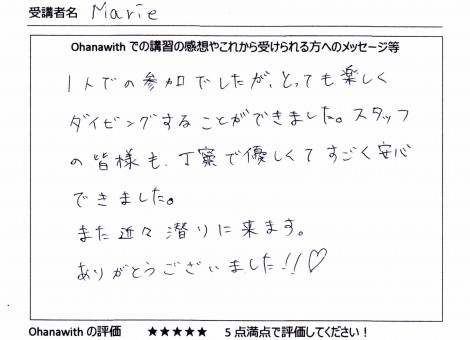 受講者名 Marie
Ohanawith での講習の感想やこれから受けられる方へのメッセージ等
1人での参加でしたが、とっても楽しく
ダイビングすることができました。スタッフ
の皆様も、丁寧で優しくてすごく安心
できました。
また近々潜りに来ます。
ありがとうございました!!♡
Ohanawith の評価 ★★★★★ 5点満点で評価してください！